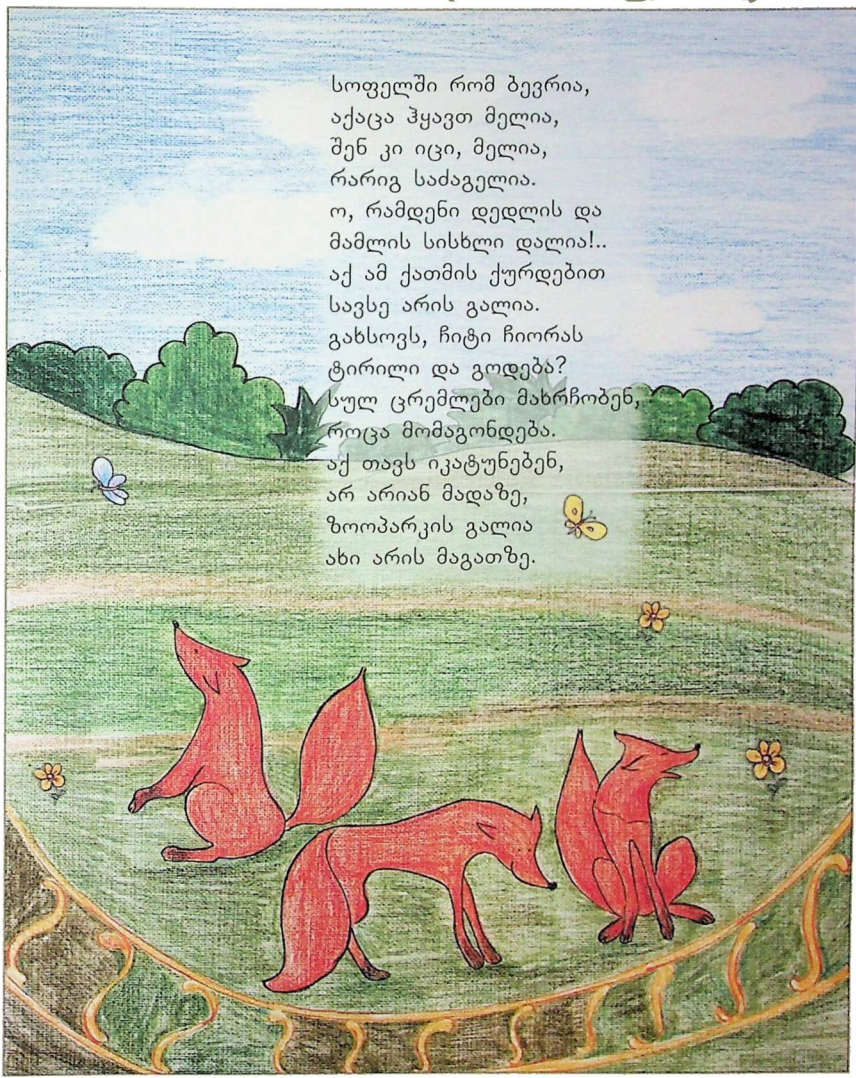 სოფელში რომ ბევრია,
აქაცა ჰყავთ მელია,
შენ კი იცი, მელია,
რარიგ საძაგელია.
ო, რამდენი დედლის და
მამლის სისხლი დალია!..
აქ ამ ქათმის ქურდებით
სავსე არის გალია.
გახსოვს, ჩიტი ჩიორას
ტირილი და გოდება?
სულ ცრემლები მახრჩობენ,
როცა მომაგონდება.
აქ თავს იკატუნებენ,
არ არიან მადაზე,
ზოოპარკის გალია
ახი არის მაგათზე.